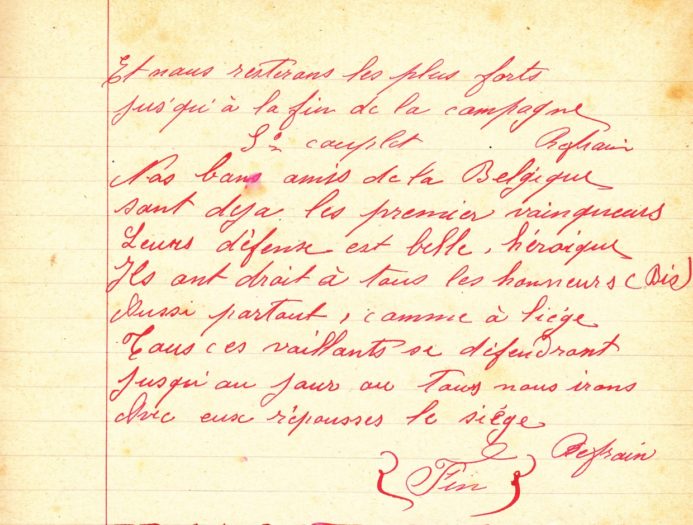 Et nous resterons les plus forts
jusqu'à la fin de la campagne
5e couplet Refrain
Nos bons amis de la Belgique
sont deja les premier vainqueurs
Leurs défense est belle, héroique
Ils ont droit à tous les honneurs (Bis)
Aussi partout, comme à liége
Tous ces vaillants se défendront
jusqu'au jour ou tous nous irons
Avec eux répousses le siége
Refrain
{Fin}